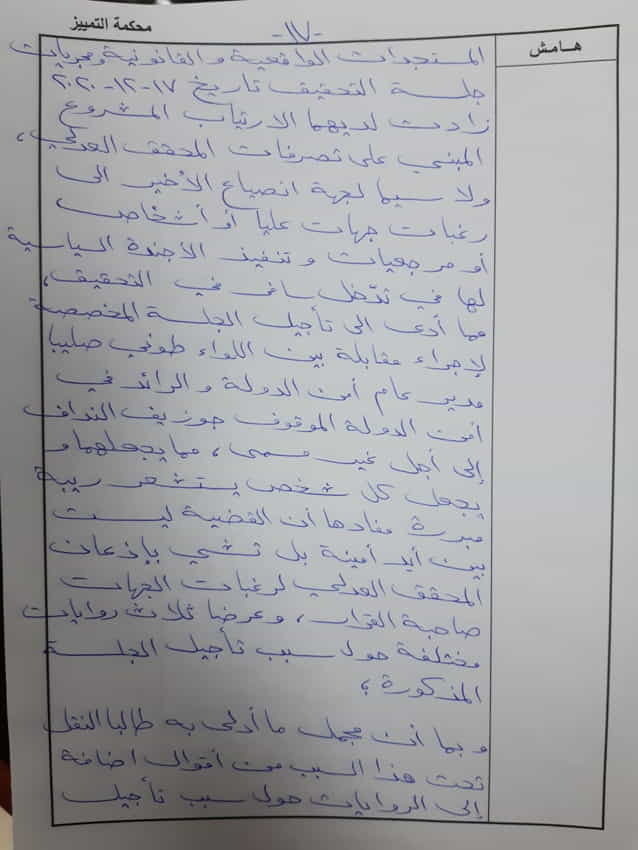 محكمة التمييز
-١٧-
هـامـش
المستجدات الواقعية والقانونية ومجريات
جلسة التحقيق تاريخ ١٧-١٢-٢٠٢٠
زادت لديهما الارتياب المشروع
المبني على تصرفات المحقق العدلي،
ولا سيما لجهة انصياع الأخير الى
رغبات جهات عليا أو أشخاص
أو مرجعيات وتنفيذ الأجندة السياسية
لها في تدخل سافر في التحقيق،
مما أدى الى تأجيل الجلسة المخصصة
لإجراء مقابلة بين اللواء طوني صليبا
مدير عام أمن الدولة والرائد في
أمن الدولة الموقوف جوزيف النداف
إلى أجل غير مسمى، مما يجعلهما و
يجعل كل شخص يستشعر ريبة
مبررة مفادها أن القضية ليست
بين أيد أمينة بل تشي بإذعان
المحقق العدلي لرغبات الجهات
صاحبة القرار، وعرضا ثلاث روايات
مختلفة حول سبب تأجيل الجلسة
المذكورة؛
وبما أن مجمل ما أدلى به طالبا النقل
تحت هذا السبب من أقوال اضافة
إلى الروايات حول سبب تأجيل